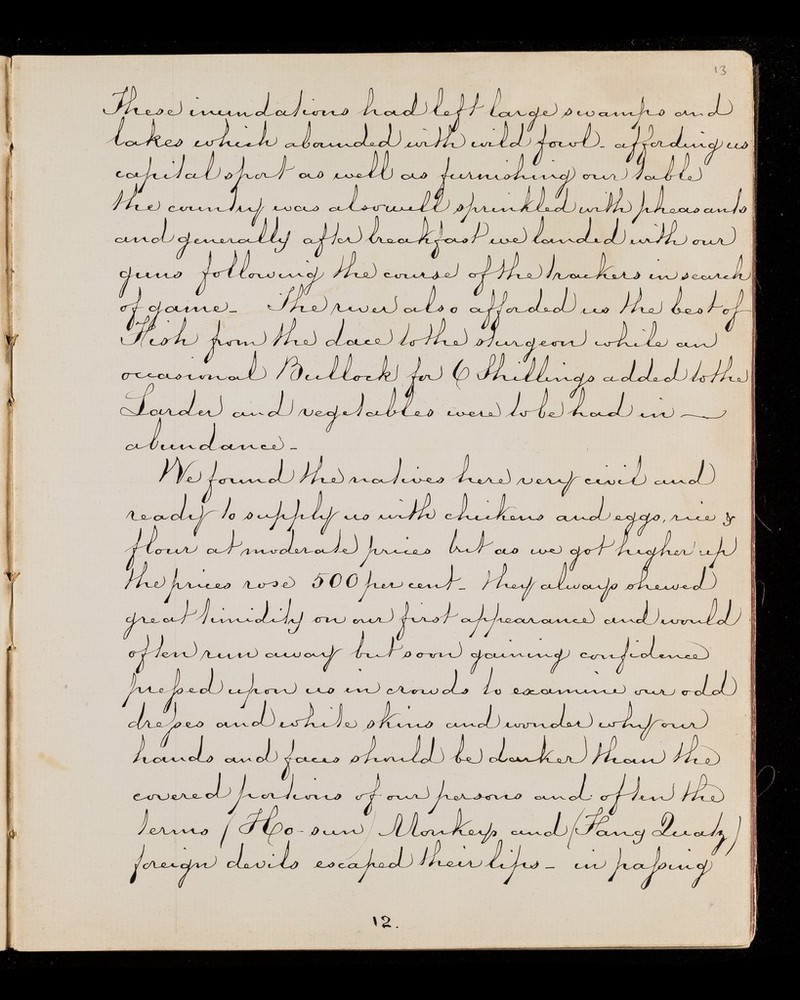 13
These inundations had left large swamps and
lakes which abounded with wild fowl - affording us
capital sport as well as furnishing our table
the country was also well sprinkled with pheasants
and generally after breakfast we landed with our
guns following the course of the trackers in search
of game - The river also afforded us the best of
Fish from the dace to the sturgeon while an
occasional Bullock for 6 Shillings added to the
Larder and vegetables were to be had in —
abundance -
We found the natives here very civil and
ready to supply us with chickens and eggs, rice &
flour at moderate prices but as we got higher up
the prices rose 500 per cent - they always shewed
great timidity on our first appearance and would
often run away but soon gaining confidence
pressed upon us in crowds to examine our odd
dresses and white skins and wonder why our
hands and faces should be darker than the
covered portions of our persons and often the
terms (Ho-sun) Monkeys and (Fang Quatz)
foreign devils escaped their lips - in passing
12.